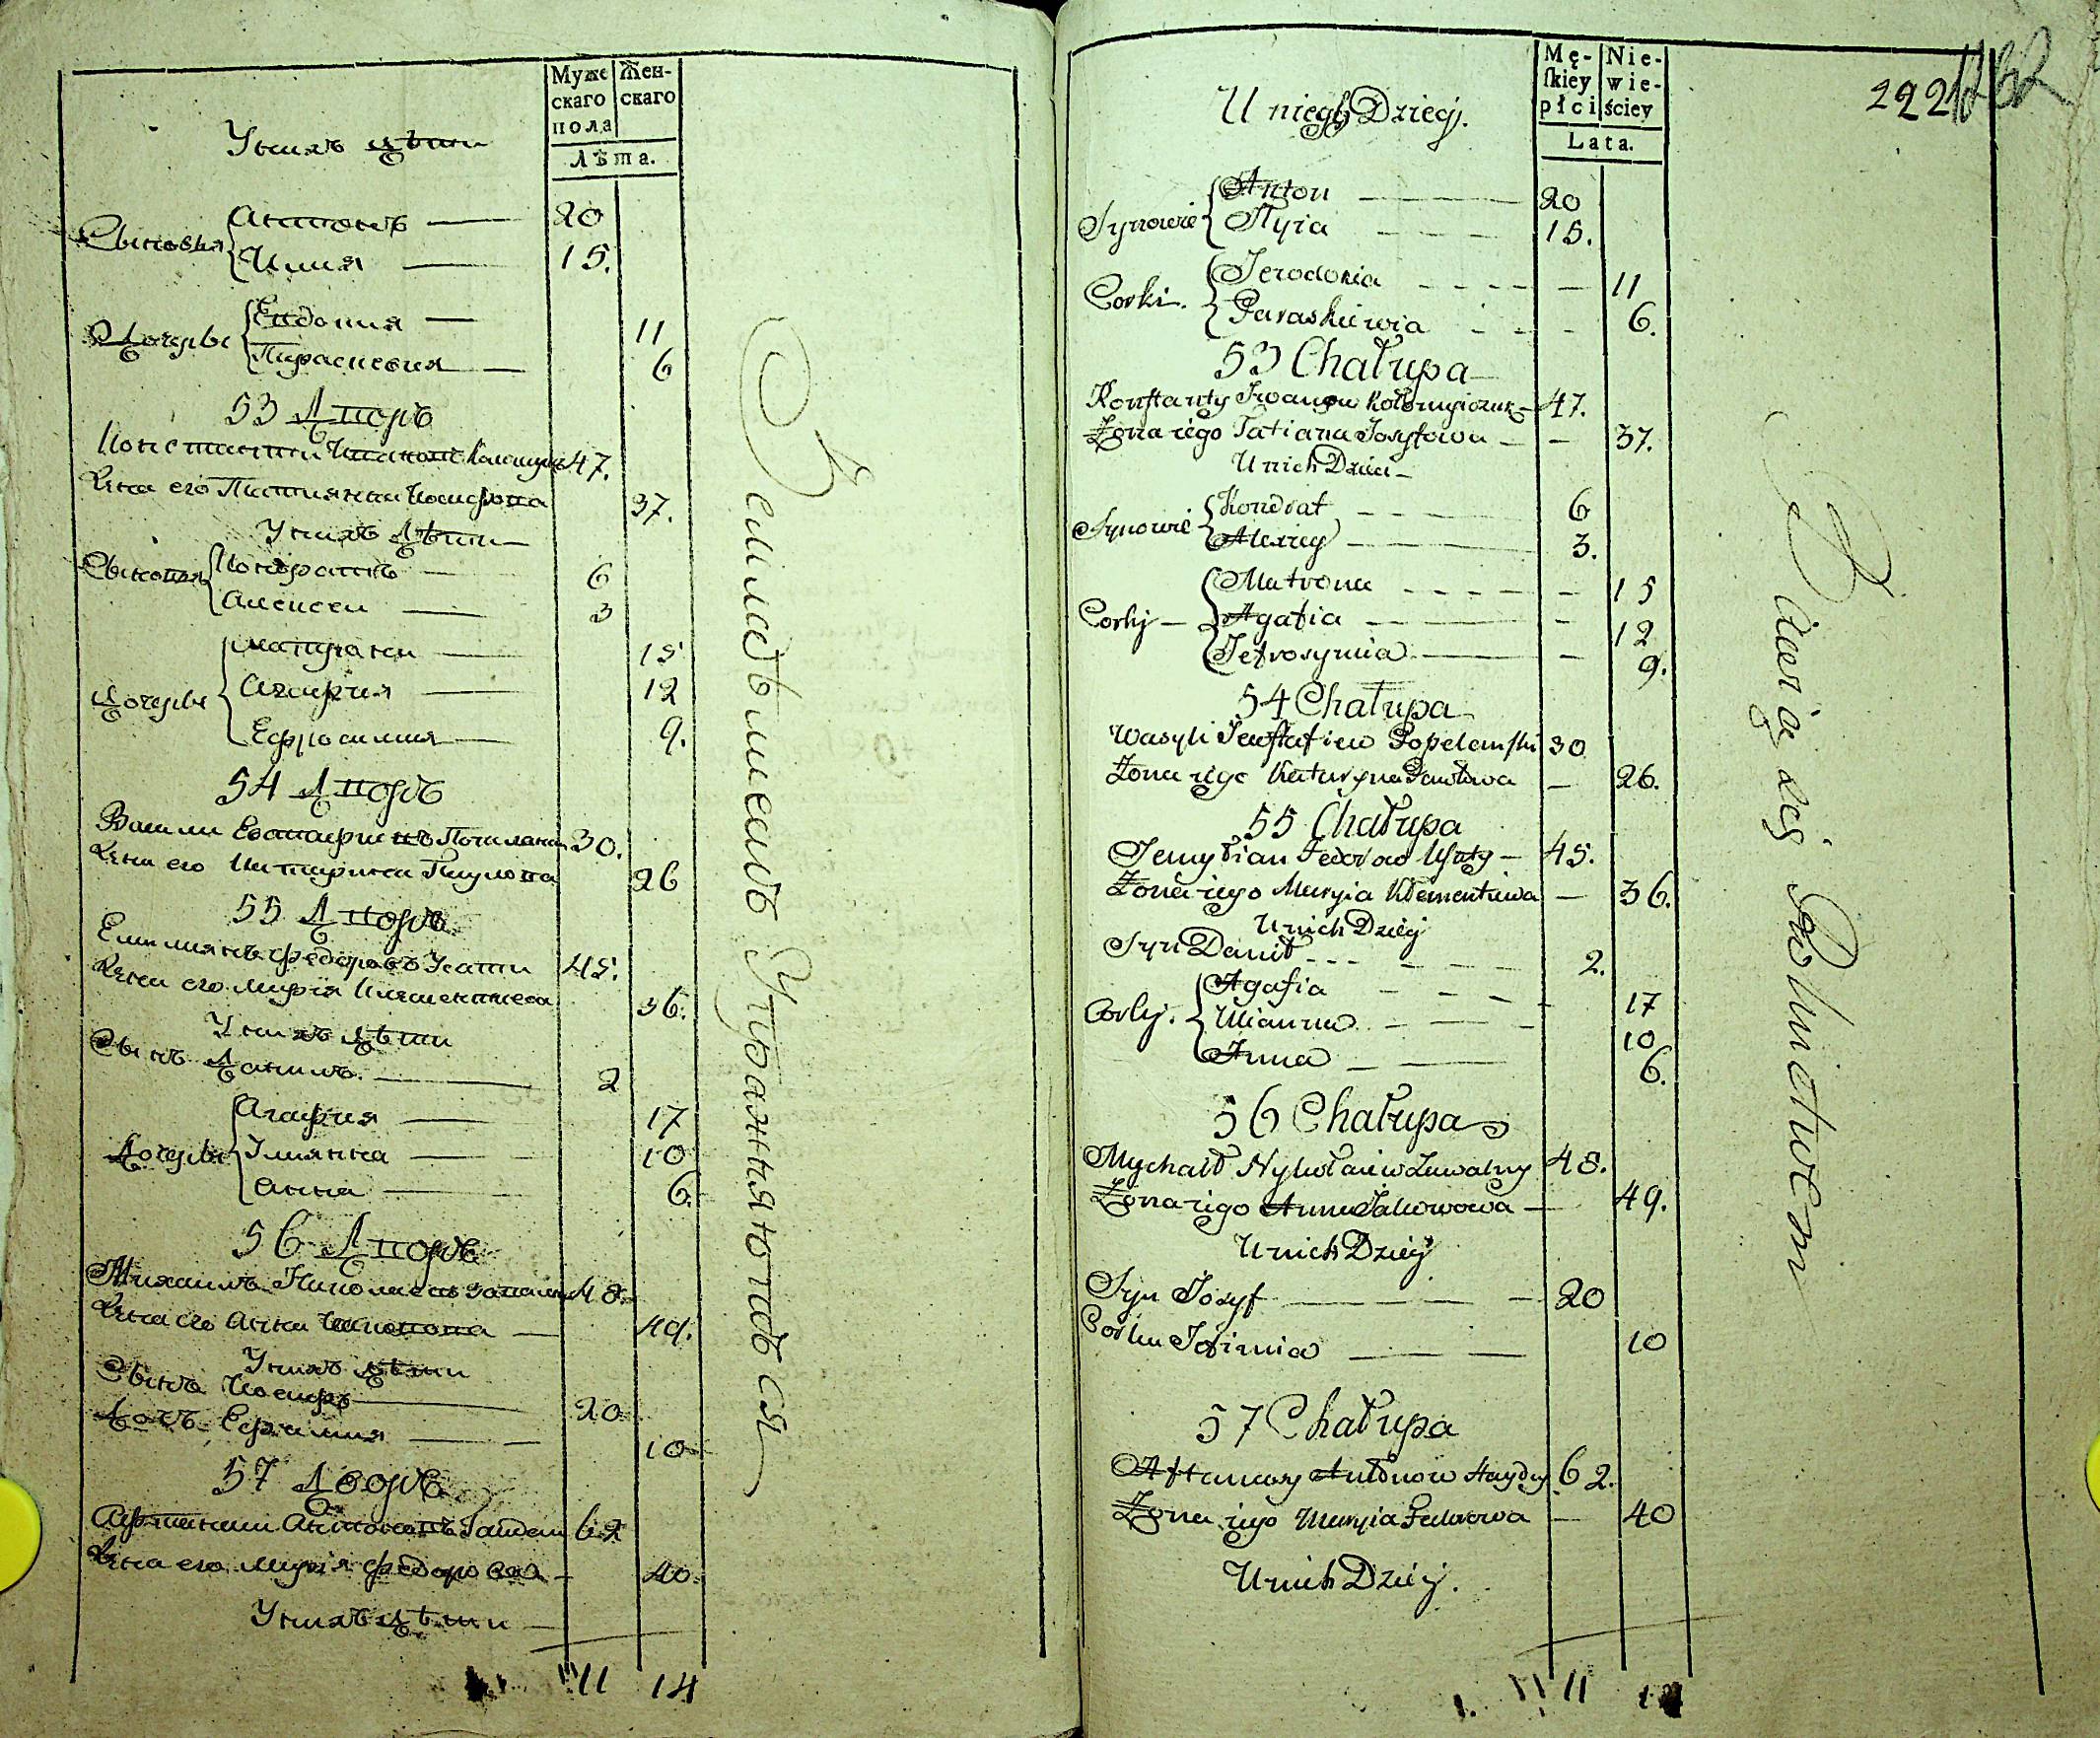 Муже
скаго
пола
Жен-
скаго
Лѣта.
У нихъ дѣти
Сыновья
Антонъ — 20
Илия — 15.
Дочери
Евдокия — 11
Параскевия — 6
53 Дворъ
Константи Ивановъ 47.
Жена его Татияна Иосифова 37.
У нихъ Дѣти
Сыновья
Кондратъ — 6
Алексеи — 3
Дочери
Матрона — 15
Агафия — 12
Ефросимия — 9.
54 Дворъ
Васили Евстафиевъ 30.
Жена его Катарина Павлова 26
55 Дворъ
Емилиянъ Федоровъ 45.
Жена его Мария Клементиева 36.
У нихъ дѣти
Сынъ Данилъ. — 2
Дочери
Агафия — 17
Улиянна — 10
Анна — 6.
56 Дворъ
Михаилъ Николаевъ 48.
Жена его Анна — 49.
У нихъ дѣти
Сынъ Иосифъ — 20
Дочь Ефимия — 10
57 Дворъ
Афтанаси Антоновъ Гайдеи 62
Жена его Мария Федорова — 40
У нихъ дѣти
11 14
Землеdѣлиемъ Упражняютъся
222
Mę-
ſkiey
płci
Nie-
wie-
ściey
Lata.
U niegó Dzieci.
Synowie
Anton — 20
Ilyia — 15.
Corki.
Jewdokia — 11
Paraskiewia — 6.
53 Chałupa
Konſtanty Iwanow 47.
Żona iego Tatiana Josyfowa — 37.
U nich Dzieci
Synowie
Kondrat — 6
Alexiey — 3.
Corky —
Matrona — 15
Agafia — 12
Jefrosymia — 9.
54 Chałupa
Wasyli Jewſtafiew 30
Żona iego Kataryna Pawłowa — 26.
55 Chałupa
Jemylian Fedorow — 45.
Żona iego Maryia Klementiewa — 36.
U nich Dziey
Syn Danił — 2.
Corky.
Agafia — 17
Ulianna — 10
Anna — 6.
56 Chałupa
Mychałł Nykołaiew Zawalny 48.
Żona iego Anna Jakowowa — 49.
U nich Dziey
Syn Josyf — 20
Corka Jefimia — 10
57 Chałupa
Aftanasy Antonow Haydey 62.
Żona iego Maryia Fedorowa — 40
U nich Dziey.
11
Bawią się Rolnictwem